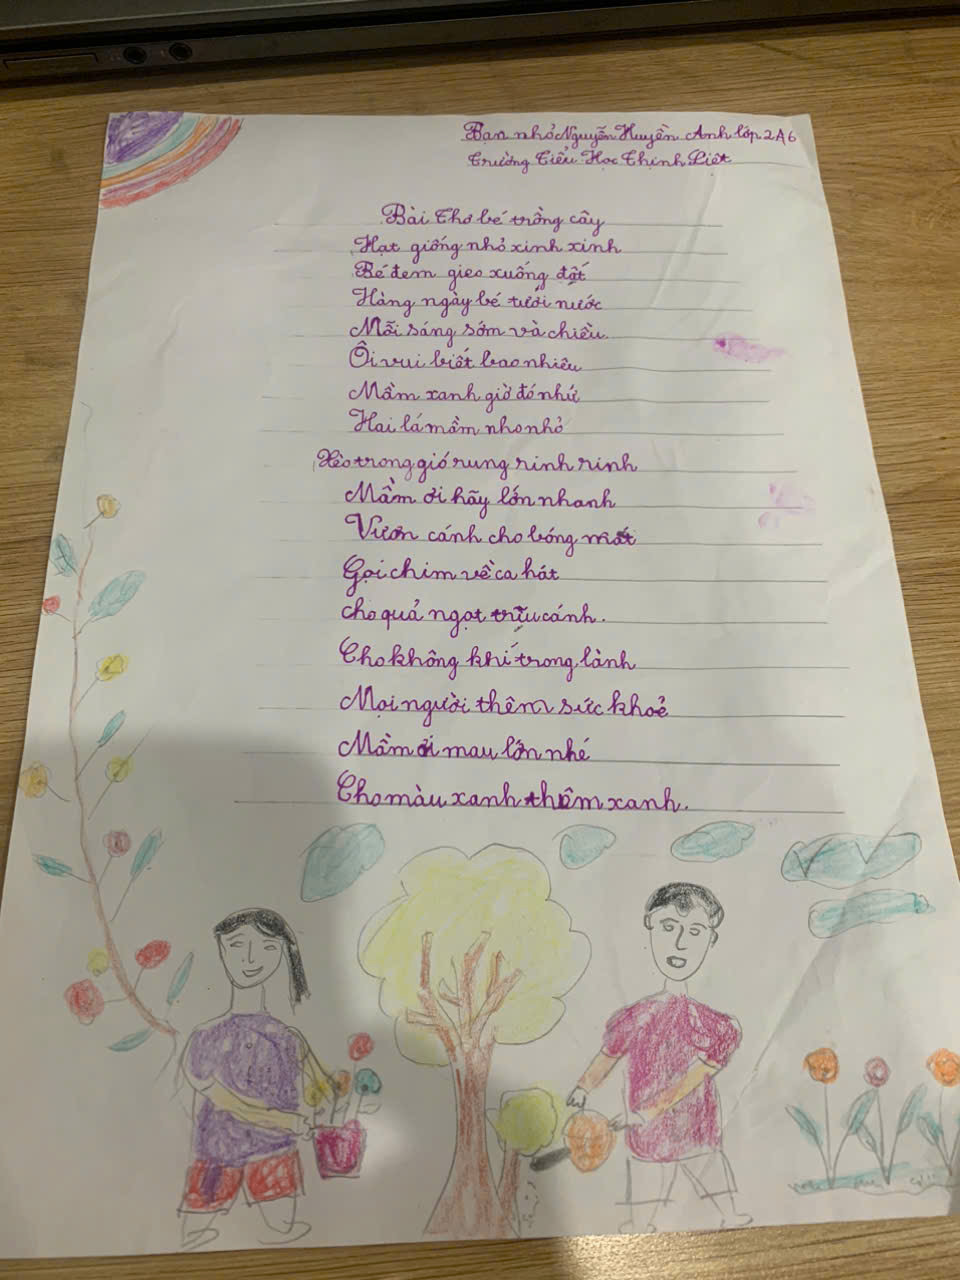 Bạn nhỏ Nguyễn Huyền Anh lớp 2A6
Trường Tiểu Học Thịnh Liệt
Bài thơ bé trồng cây
Hạt giống nhỏ xinh xinh
Bé đem gieo xuống đất
Hàng ngày bé tưới nước
Mỗi sáng sớm và chiều.
Ôi vui biết bao nhiêu
Mầm xanh giờ đó nhứ
Hai lá mầm nho nhỏ
Xèo trong gió rung rinh rinh
Mầm ơi hãy lớn nhanh
Vươn cánh cho bóng mát
Gọi chim về ca hát
cho quả ngọt trĩu cánh.
Cho không khí trong lành
Mọi người thêm sức khoẻ
Mầm ơi mau lớn nhé
Cho màu xanh thêm xanh.